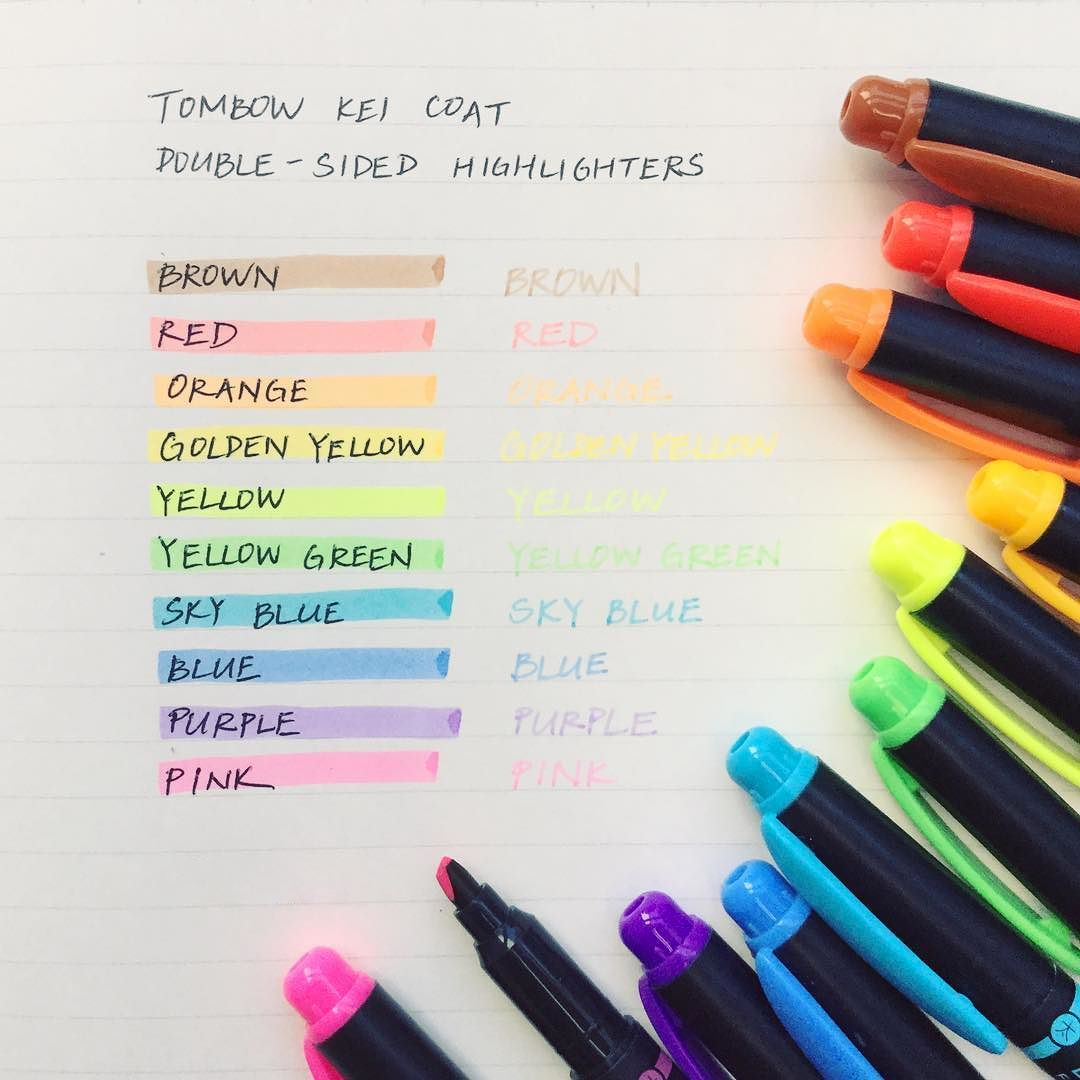 TOMBOW KEI COAT
DOUBLE-SIDED HIGHLIGHTERS
BROWN BROWN
RED RED
ORANGE ORANGE
GOLDEN YELLOW GOLDEN YELLOW
YELLOW YELLOW
YELLOW GREEN YELLOW GREEN
SKY BLUE SKY BLUE
BLUE BLUE
PURPLE PURPLE
PINK PINK